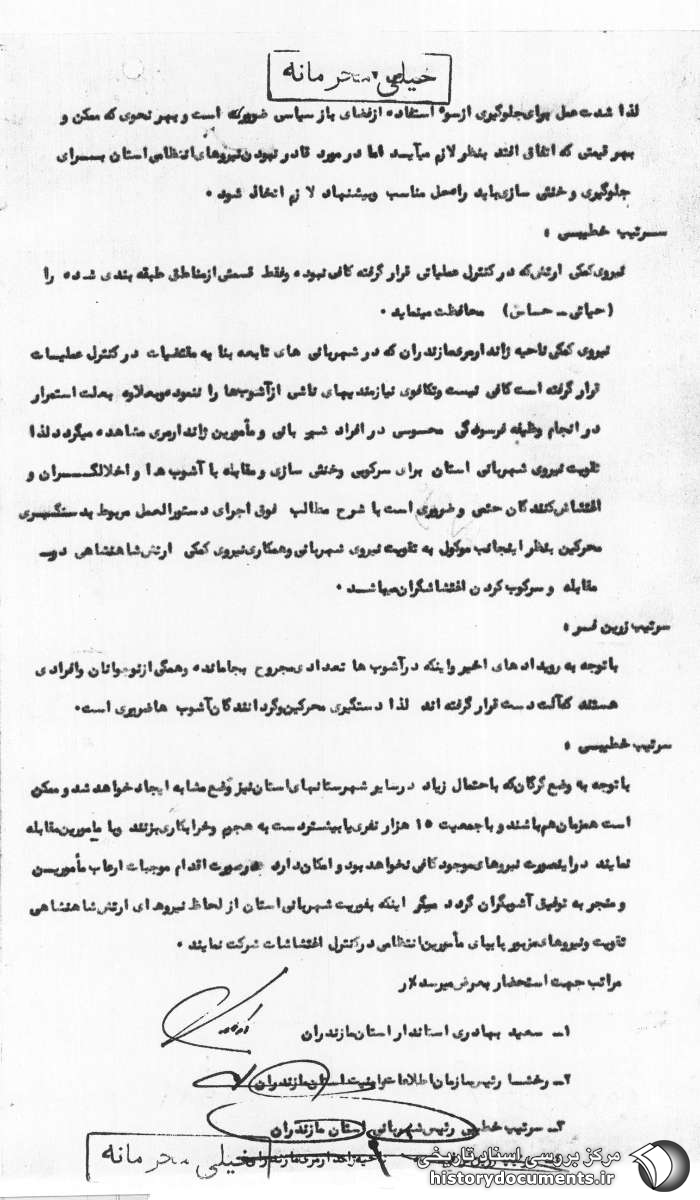 خیلی محرمانه
لذا شدت عمل برای جلوگیری از سوء استفاده از فضای باز سیاسی ضروریکه است و بهر نحوی که ممکن و
بهر قیمتی که اتفاق افتد بنظر لازم میآید اما در مورد قادر نبودن نیروهای انتظامی استان بـــرای
جلوگیری و خنثی سازی باید راه حل مناسب و پیشنهاد لازم اتخاذ شود .
ســرتیپ خطیبـی :
نیروی کمکی ارتش که در کنترل عملیاتی قرار گرفته کافی نبوده و فقط قسمتی از مناطق طبقه بندی شده را
(حیاتی ـ حساس) محافظت مینماید .
نیروی کمکی ناحیه ژاندارمری مازندران که در شهربانی های تابعه بنا به مقتضیات در کنترل عملیات
قرار گرفته است کافی نیست و تکافوی نیازمندیهای ناشی از آشوبها را ننموده و بعلاوه بعلت استمرار
در انجام وظیفه فرسودگی محسوسی در افراد شهربانی و مأمورین ژاندارمری مشاهده میگردد لذا
تقویت نیروی شهربانی استان برای سرکوبی و خنثی سازی و مقابله با آشوب ها و اخلالگـــران و
اغتشاش کنندگان حتمی و ضروری است با شرح مطالب فوق اجرای دستورالعمل مربوط به دستگیـری
محرکین بنظر اینجانب موکول به تقویت نیروی شهربانی و همکاری نیروی کمکی ارتش شاهنشاهی در
مقابله و سرکوب کردن اغتشاشگران میباشـــد .
سرتیپ زرین فـر :
با توجه به رویدادهای اخیر و اینکه در آشوب ها تعدادی مجروح بجا مانده و همگی از نوجوانان و افرادی
هستند که آلت دست قرار گرفته اند لذا دستگیری محرکین و گردانندگان آشوب ها ضروری است .
سرتیپ خطیبـی :
با توجه به وضع گرگان که با احتمال زیاد در سایر شهرستانهای استان نیز وضع مشابه ایجاد خواهد شد و ممکن
است همزمان هم باشند و با جمعیت ۱۵ هزار نفری یا بیشتر دست به هجوم و خرابکاری بزنند و با مامورین مقابله
نمایند در اینصورت نیروهای موجود کافی نخواهد بود و امکان دارد در صورت اقدام موجبات ارعاب مأموریـن
و منجر به توفیق آشوبگران گردد مگر اینکه تقویت شهربانی استان از لحاظ نیروهای ارتش شاهنشاهی
تقویت و نیروهای مزبور پا بپای مأمورین انتظامی در کنترل اغتشاشات شرکت نمایند .
مراتب جهت استحضار بعرض میرسد
۱ـ سعید بهادری استاندار استان مازندران
۲ـ رخشا رئیس سازمان اطلاعات و امنیت استان مازندران
۳ـ سرتیپ خطیبی رئیس شهربانی استان مازندران
ناحیه ژاندارمری مازندران
خیلی محرمانه
مرکز بررسی اسناد تاریخی
historydocuments.ir